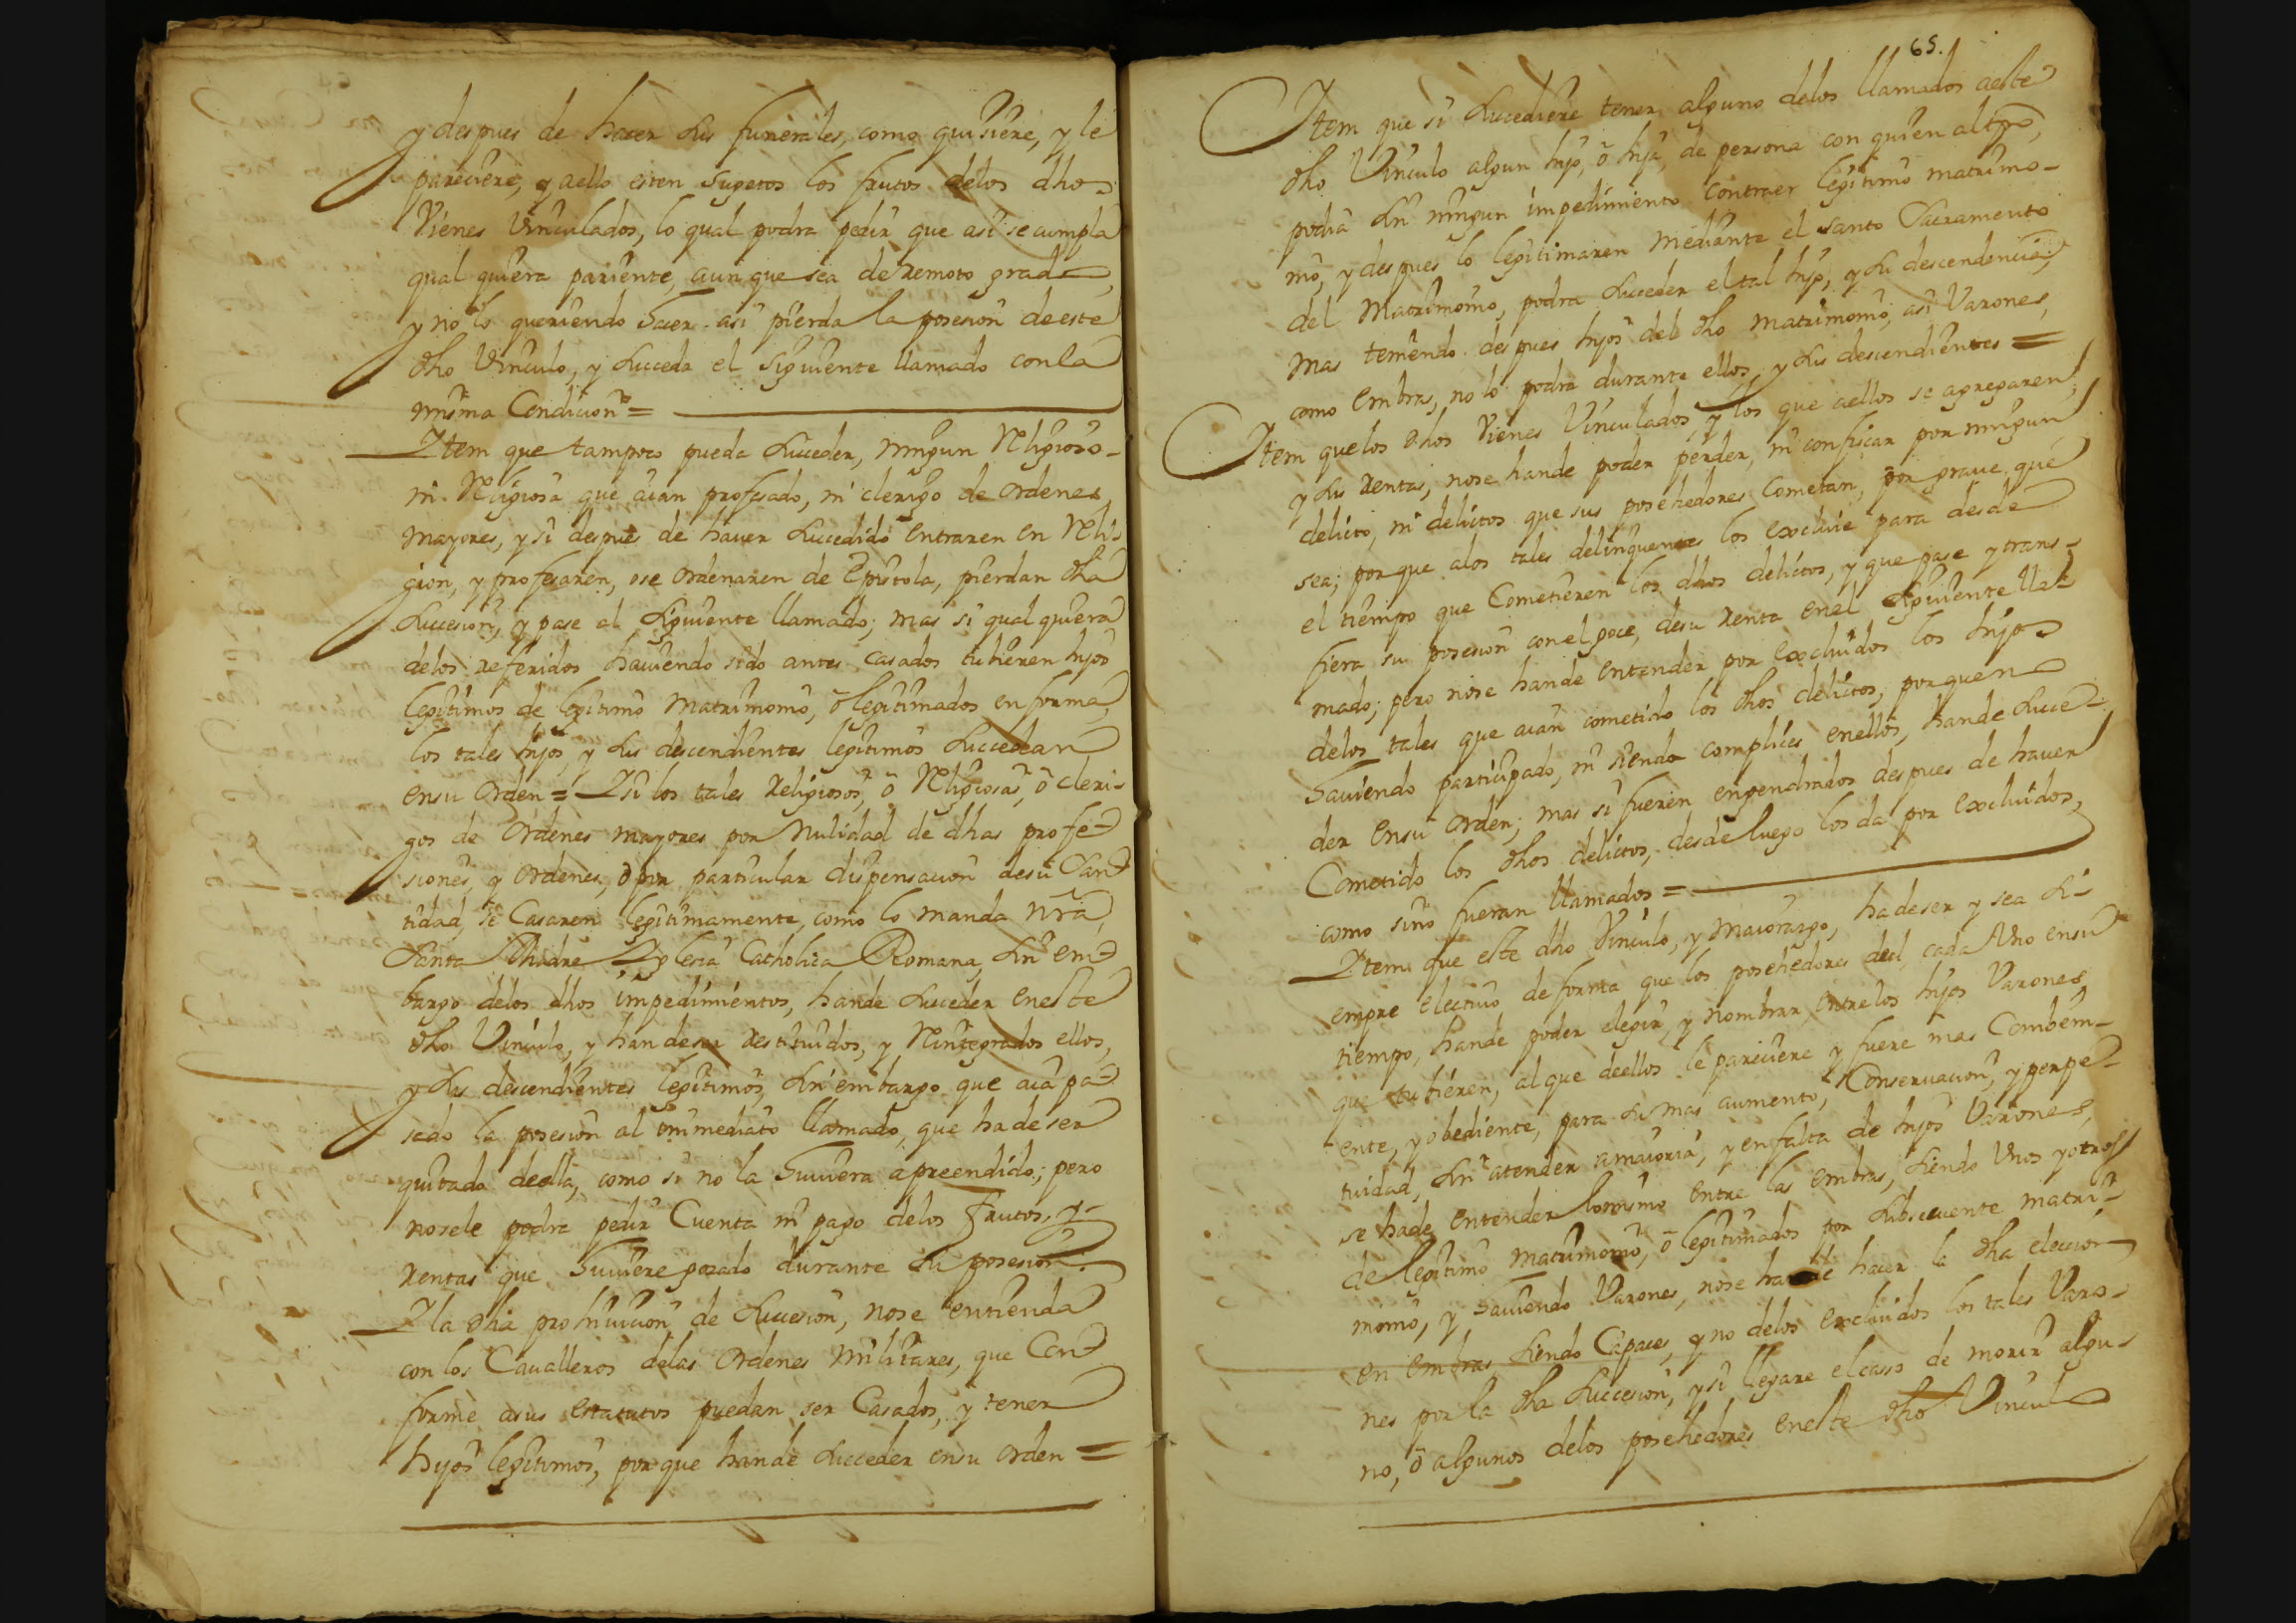 y despues de hacer sus funerales, como quisiere, y le
pareciere, y aello esten sugetos los frutos delos dhos
Vienes Vinculados, lo qual podra pedir que asi se cumpla
qual quiera pariente, aun que sea de remoto grado,
y no lo queriendo hacer asi pierda la posesion de este
dho Vinculo, y succeda el siguiente llamado con la
misma Condicion =
Item que tampoco pueda succeder, ningun Religioso
ni Religiosa que aian profesado, ni clerigo de ordenes
mayores, y si despues de hauer succedido entraren en Reli-
gion, y profesaren, o se ordenaren de Epistola, pierdan dha
succesion, y pase al siguiente llamado; mas si qual quiera
delos referidos hauiendo sido antes casados tubieren hijos
legitimos de legitimo Matrimonio, ó legitimados en forma,
los tales hijos, y sus descendientes legitimos succedean
ensu orden = Y si los tales Religiosos, ó Religiosas, ó cleri-
gos de ordenes mayores por Nulidad de dhas profe-
siones, y ordenes, ó por particular dispensacion de su San-
tidad, se Casaren legitimamente, como lo manda nrã
Santa Madre Yglesia Catholica Romana, sin em-
bargo delos dhos impedimientos, hande succeder eneste
dho Vinculo, y han de ser restituidos, y Reintegrados ellos,
y sus descendientes legitimos, sin embargo que aia pa-
sado la posesion al inmediato llamado, que ha de ser
quitado de ella, como si no la huuiera apreendido; pero
nosele podra pedir Cuenta ni pago delos frutos, y
rentas que huuiere gozado durante su posesion.
Y la dha prohiuicion de succesion, nose entienda
con los Caualleros delas ordenes militares, que Con-
forme asus estatutos puedan ser Casados, y tener
hijos legitimos, por que hande succeder ensu orden =
65.
Item que si succediere tener alguno delos llamados aeste
dho Vinculo algun hijo, ó hija, de persona con quien al tpõ,
podia sin ningun impedimiento contraer legitimo matrimo-
nio, y despues lo legitimaren mediante el santo Sacramento
del Matrimonio, podra succeder el tal hijo, y su descendencia;
mas teniendo despues hijos del dho matrimonio, asi Varones,
como embras, no lo podra durante ellos, y sus descendientes =
Item quelos dhos Vienes Vinculados, y los que aellos se agregaren,
y sus rentas, nose hande poder perder, ni confiscar por ningun
delicto, ni delictos que sus posehedores Cometan, por graue que
sea; porque alos tales delinquentes los excluie para desde
el tiempo que Cometieren los dhos delictos, y que pase y trans-
fiera su posesion con el goce, desu renta enel siguiente lla-
mado; pero nose hande entender por excluidos los hijos
delos tales que aian cometido los dhos delictos, porque no
hauiendo participado, ni siendo complices enellos, hande succe-
der ensu orden; mas si fueren engendrados despues de hauer
Cometido los dhos delictos, desde luego los da por excluidos,
como sino fueran llamados =
Item que este dho Vinculo, y maiorazgo, ha de ser y sea si-
empre electiuo de forma que los posehedores del, cada Uno ensu
tiempo, hande poder elegir, y nombrar entre los hijos Varones
que tubieren, al que de ellos le pareciere y fuere mas Combeni-
ente, y obediente, para su mas aumento, Conseruacion, y perpe-
tuidad, sin atender amaioria, y en falta de hijos Varones,
se hade entender lo mismo entre las embras, siendo Unos y otros
de legitimo matrimonio, ó legitimados por subsecuente matri-
monio, y hauiendo Varones, nose hande hacer la dha eleccion
en embras siendo Capaces, y no delos excluidos los tales Varo-
nes por la dha succesion, y si llegare el casso de morir algu-
no, ó algunos delos posehedores eneste dho Vinculo